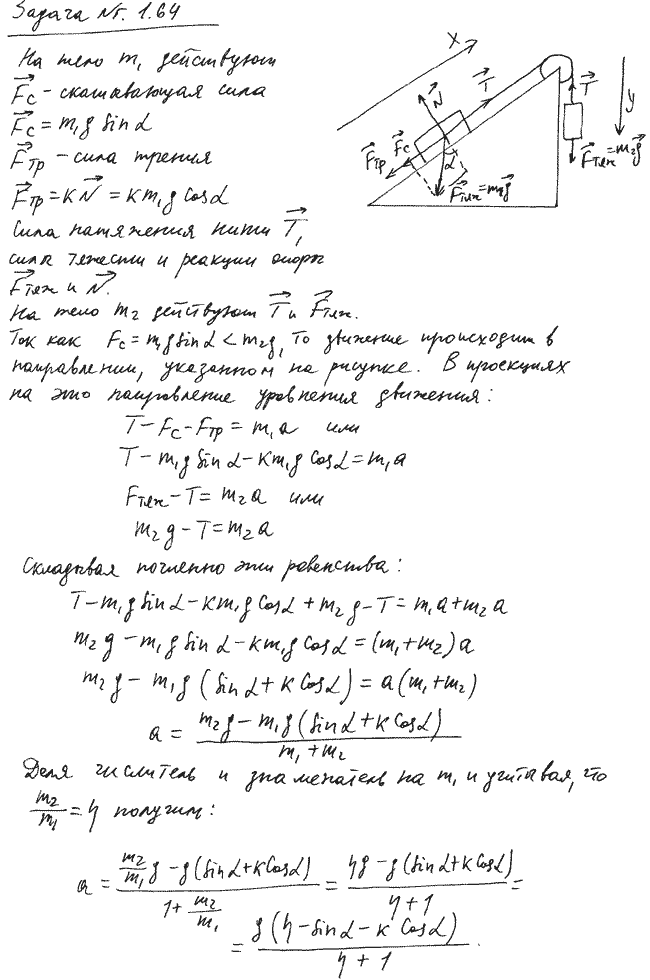 Задача № 1.64
На тело m₁ действуют
F⃗с - скатывающая сила
F⃗с = m₁g sinα
F⃗тр - сила трения
F⃗тр = kN⃗ = km₁g cosα
Сила натяжения нити T⃗,
сила тяжести и реакции опоры
F⃗тяж и N⃗.
На тело m₂ действуют T⃗ и F⃗тяж.
Так как Fс = m₁g sinα < m₂g, то движение происходит в
направлении, указанном на рисунке. В проекциях
на это направление уравнения движения:
T - Fс - Fтр = m₁a или
T - m₁g sinα - km₁g cosα = m₁a
Fтяж - T = m₂a или
m₂g - T = m₂a
Складывая почленно эти равенства:
T - m₁g sinα - km₁g cosα + m₂g - T = m₁a + m₂a
m₂g - m₁g sinα - km₁g cosα = (m₁ + m₂)a
m₂g - m₁g (sinα + k cosα) = a(m₁ + m₂)
a = (m₂g - m₁g (sinα + k cosα)) / (m₁ + m₂)
Деля числитель и знаменатель на m₁ и учитывая, что
m₂/m₁ = η получим:
a = (m₂/m₁ g - g (sinα + k cosα)) / (1 + m₂/m₁) = (ηg - g (sinα + k cosα)) / (η + 1) =
= g (η - sinα - k cosα) / (η + 1).
x
N⃗
T⃗
T⃗
y
F⃗с
F⃗тр
α
F⃗тяж = m₁g⃗
F⃗тяж = m₂g⃗